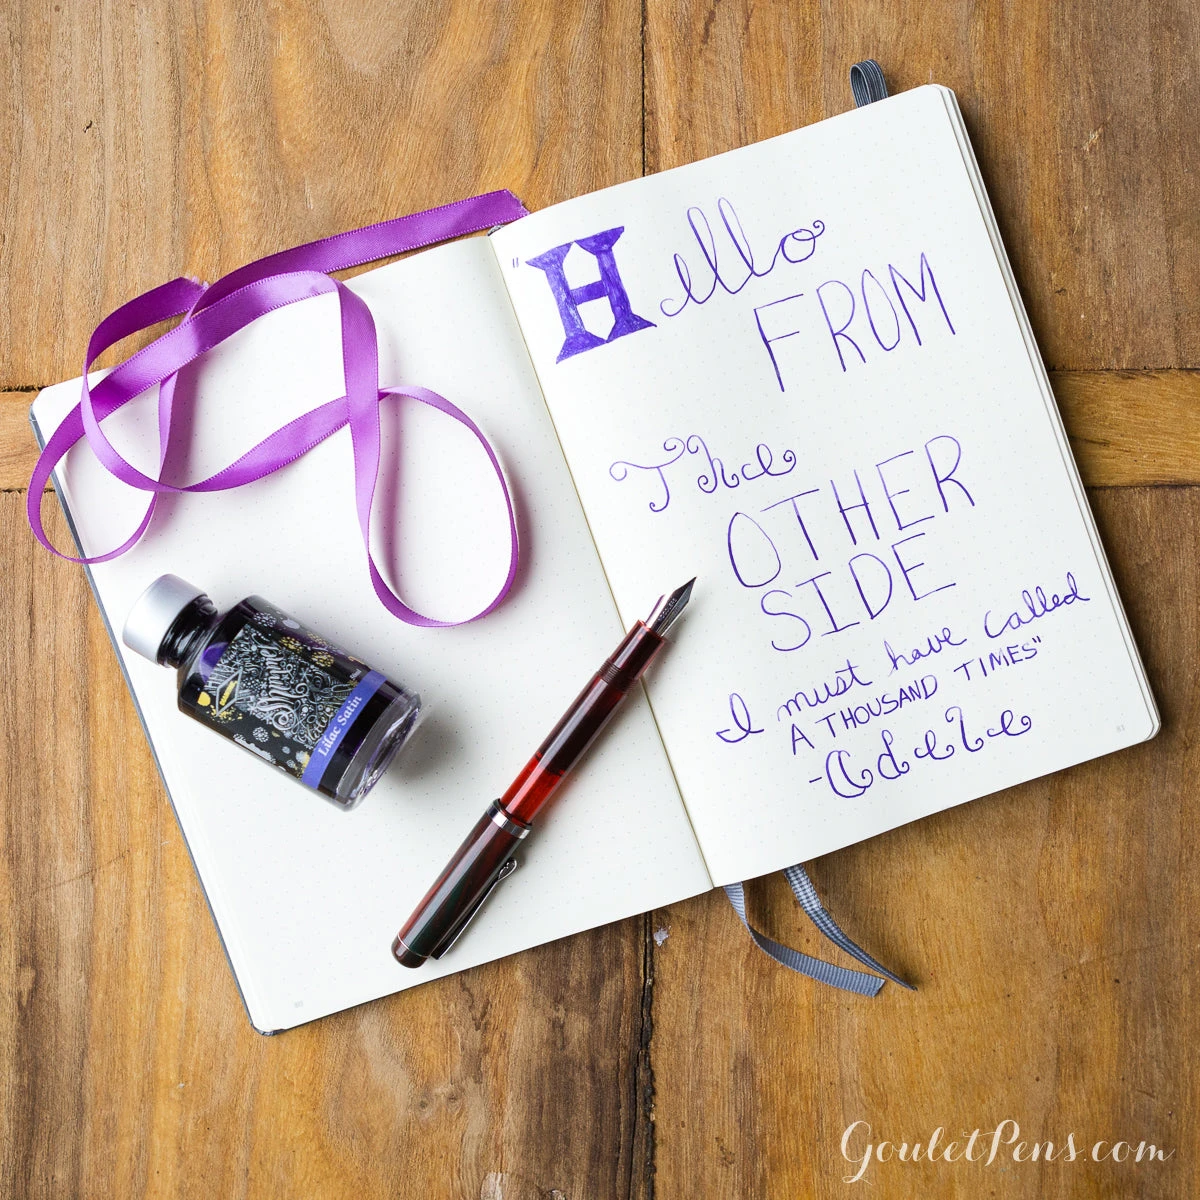 "Hello
FROM
The
OTHER
SIDE
I must have called
A THOUSAND TIMES"
-Adele
Diamine
Lilac Satin
80
81
GouletPens.com